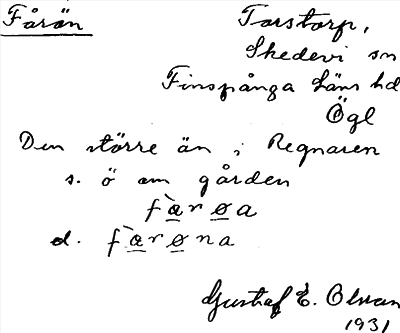 Fårön
Torstorp,
Skedevi sn
Finspånga läns hd
Ögl
Den större än i Regnaren
s. ö om gården
fàrøa
d. fàrøna
Gustaf E. Olsson
1931